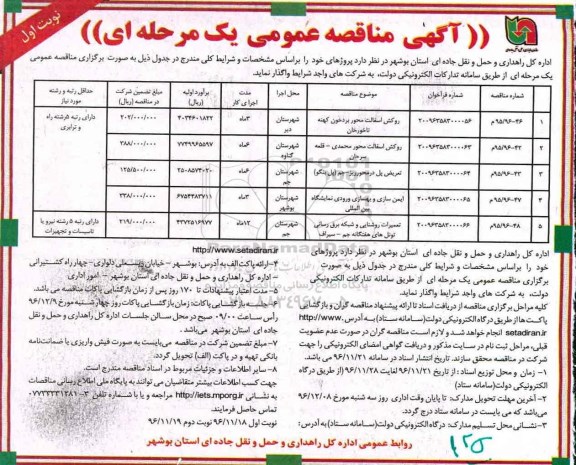 نوبت اول
(( آگهی مناقصه عمومی یک مرحله ای))
اداره کل راهداری و حمل و نقل جاده ای استان بوشهر در نظر دارد پروژهای خود را براساس مشخصات و شرایط کلی مندرج در جدول ذیل به صورت برگزاری مناقصه عمومی
یک مرحله ای از طریق سامانه تدارکات الکترونیکی دولت، به شرکت های واجد شرایط واگذار نماید.
شماره مناقصه شماره فرآخوان موضوع مناقصه محل اجرا مدت اجرای کار برآورد اولیه (ریال) مبلغ تضمین شرکت در مناقصه (ریال) حداقل رتبه و رشته مورد نیاز
۱ ۹۵/۹۶-۳۶م ۲۰۰۹۶۳۵۸۳۰۰۰۰۵۶ روکش اسفالت محور بردخون کهنه تاخورخان شهرستان دیر ۳ماه ۴۰۳۴۶۰۱۸۴۲ ۲۰۲/۰۰۰/۰۰۰ دارای رتبه ۵رشته راه و ترابری
۲ ۹۵/۹۶-۴۲م ۲۰۰۹۶۳۵۸۳۰۰۰۰۶۳ روکش اسفالت محور محمدی – قلعه شهرستان گناوه ۶ماه ۷۷۴۹۹۶۵۵۹۷ ۳۸۸/۰۰۰/۰۰۰
۳ ۹۵/۹۶-۴۳م ۲۰۰۹۶۳۵۸۳۰۰۰۰۶۴ تعریض پل درمحورریز-جم (پل تنگو) شهرستان جم ۶ماه ۲۵۰۸۵۷۴۰۲۰ ۱۲۵/۵۰۰/۰۰۰
۴ ۹۵/۹۶-۴۷م ۲۰۰۹۶۳۵۸۳۰۰۰۰۶۵ ایمن سازی و بهسازی ورودی نمایشگاه بین المللی شهرستان بوشهر ۶ماه ۶۷۵۴۴۸۳۷۱۱ ۳۳۸/۰۰۰/۰۰۰
۵ ۹۵/۹۶-۴۸م ۲۰۰۹۶۳۵۸۳۰۰۰۰۶۶ تعمیرات روشنایی و شبکه برق رسانی تونل های هفتگانه جم – سیراف شهرستان جم ۱۲ماه ۴۳۷۲۵۱۶۹۷۷ ۲۱۹/۰۰۰/۰۰۰ دارای رتبه ۵ رشته نیرو یا تاسیسات و تجهیزات
اداره کل راهداری و حمل و نقل جاده ای استان بوشهر در نظر دارد پروژهای
خود را براساس مشخصات و شرایط کلی مندرج در جدول ذیل به صورت
برگزاری مناقصه عمومی یک مرحله ای از طریق سامانه تدارکات الکترونیکی
دولت، به شرکت های واجد شرایط واگذار نماید.
کلیه مراحل برگزاری مناقصه از دریافت اسناد تا ارائه پیشنهاد مناقصه گران و بازگشایی
پاکت ها از طریق درگاه الکترونیکی دولت(سامانه ستاد) به آدرس http://www.
setadiran.ir انجام خواهد شد و لازم است مناقصه گران در صورت عدم عضویت
قبلی، مراحل ثبت نام در سایت مذکور و دریافت گواهی امضای الکترونیکی را جهت
شرکت در مناقصه محقق سازند. تاریخ انتشار اسناد در سامانه ۹۶/۱۱/۲۱ می باشد.
۱- زمان و محل توزیع اسناد : از تاریخ ۹۶/۱۱/۲۱ لغایت ۹۶/۱۱/۲۸ (از طریق درگاه
الکترونیکی دولت(سامانه ستاد)
۲-آخرین مهلت تحویل مدارک: تا پایان وقت اداری روز سه شنبه مورخ ۹۶/۱۲/۰۸
می‌باشد که می بایست در سامانه ستاد درج گردد.
۳-نشانی محل تسلیم مدارک: درگاه الکترونیکی دولت(سامانه ستاد) به آدرس :
http://www.setadiran.ir
۴-ارائه پاکت الف به آدرس: بوشهر – خیابان رئیسعلی دلواری – چهار راه کشتیرانی
– اداره کل راهداری و حمل و نقل جاده ای استان بوشهر – امور اداری
۵-مدت اعتبار پیشنهادات تا ۱۷۰ روز پس از زمان بازگشایی پاکات مناقصه می باشد.
۶-جلسه بازگشایی پاکات: زمان بازگشایی پاکات روز چهارشنبه مورخ ۹۶/۱۲/۹
راس ساعت ۰۹/۰۰ صبح در محل سالن جلسات اداره کل راهداری و حمل و نقل
جاده ای استان بوشهر می‌باشد.
۷-مبلغ تضمین شرکت در مناقصه می‌بایست به صورت فیش واریزی یا ضمانت‌نامه
بانکی تهیه و در پاکت (الف) تحویل گردد.
۸- سایر اطلاعات و جزئیات مربوط در اسناد مناقصه مندرج است.
جهت کسب اطلاعات بیشتر متقاضیان می توانند به پایگاه ملی اطلاع رسانی مناقصات
به نشانی http://iets.mporg.ir مراجعه و یا با شماره تلفن ۳-۰۷۷۳۳۳۳۱۲۸۱
تماس حاصل فرمایند.
نوبت اول ۹۶/۱۱/۱۸ نوبت دوم ۹۶/۱۱/۱۹
روابط عمومی اداره کل راهداری و حمل و نقل جاده ای استان بوشهر
۱۲۵